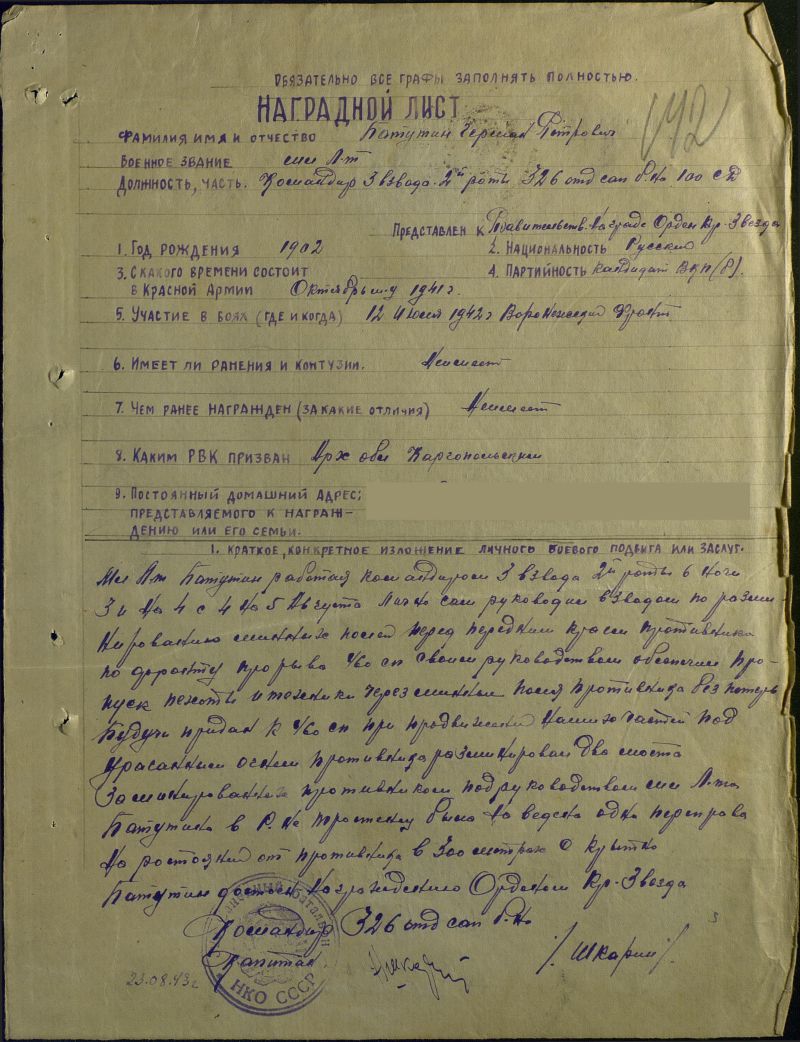 ОБЯЗАТЕЛЬНО ВСЕ ГРАФЫ ЗАПОЛНЯТЬ ПОЛНОСТЬЮ.
НАГРАДНОЙ ЛИСТ
ФАМИЛИЯ ИМЯ И ОТЧЕСТВО Батутин Герман Петрович
ВОЕННОЕ ЗВАНИЕ мл Л-т
ДОЛЖНОСТЬ, ЧАСТЬ. Командир 3 взвода 2й роты 326 отд сап б-на 100 СД
ПРЕДСТАВЛЕН К Правительств. Награде Орден Кр-Звезда
1. ГОД РОЖДЕНИЯ 1902 2. НАЦИОНАЛЬНОСТЬ Русский
3. С КАКОГО ВРЕМЕНИ СОСТОИТ 4. ПАРТИЙНОСТЬ кандидат ВКП(б).
В КРАСНОЙ АРМИИ 1941г.
5. УЧАСТИЕ В БОЯХ (ГДЕ И КОГДА) 12 Июля 1942г Воронежский Фронт
6. ИМЕЕТ ЛИ РАНЕНИЯ И КОНТУЗИИ. Неимеет
7. ЧЕМ РАНЕЕ НАГРАЖДЕН (ЗА КАКИЕ ОТЛИЧИЯ) Неимеет
8. КАКИМ РВК ПРИЗВАН Арх обл Каргопольским
9. ПОСТОЯННЫЙ ДОМАШНИЙ АДРЕС:
ПРЕДСТАВЛЯЕМОГО К НАГРАЖ-
ДЕНИЮ ИЛИ ЕГО СЕМЬИ.
1. КРАТКОЕ, КОНКРЕТНОЕ ИЗЛОЖЕНИЕ ЛИЧНОГО БОЕВОГО ПОДВИГА ИЛИ ЗАСЛУГ.
Мл Л-т Батутин работая командиром 3 взвода 2й роты в ночи
3 и на 4 с 4 на 5 Августа Лично сам руководил взводом по разми-
нированию минных полей перед передним краем противника
по фронту прорыва 460 сп своим руководством обеспечил про-
пуск пехоты и техники через минные поля противника без потерь
Будучи придан к 460 сп при продвижении наших частей под
ураганным огнем противника разминировал два моста
Заминированных противником под руководством мл Л-та
Батутина в была на ведена одна переправа
Наростоянии от противника в 300 метрах
Батутин достоен Награждению Орденом Кр-Звезда
Командир 326 отд сап б-на
Капитан /Шкарин/.
23.08.43г
НКО СССР